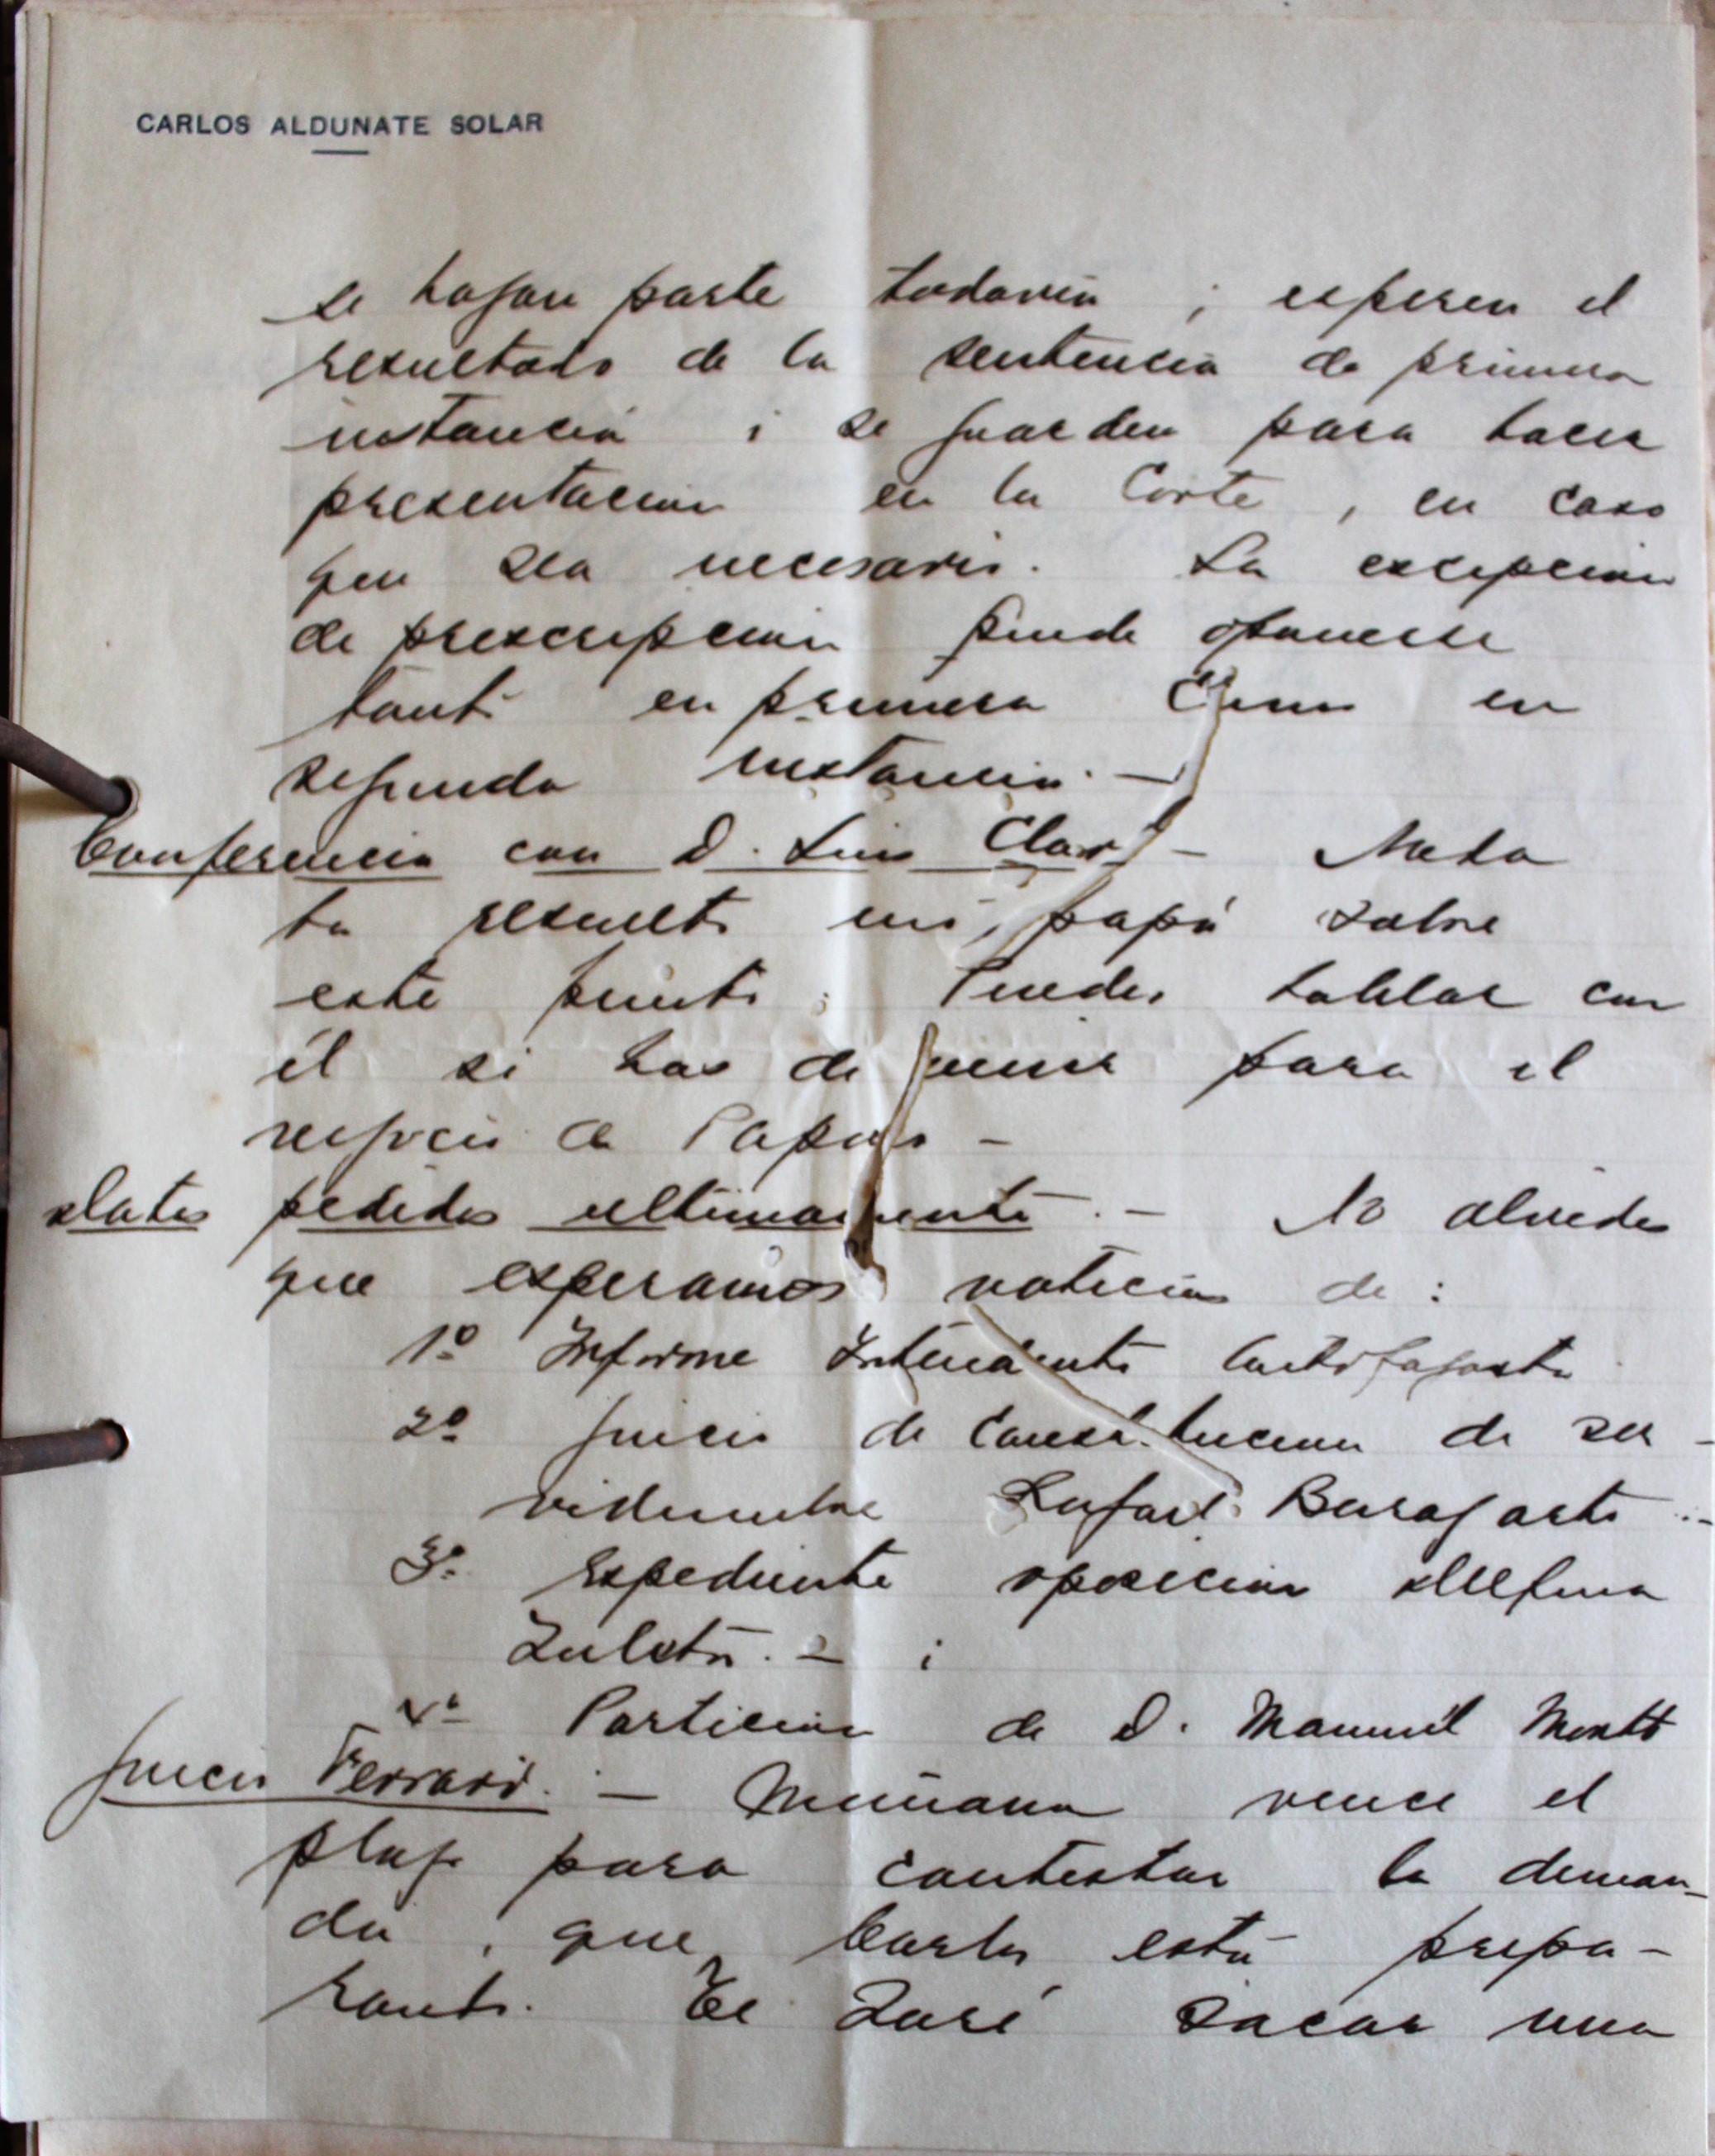 CARLOS ALDUNATE SOLAR
se hagan parte todavía ; esperen el
resultado de la sentencia de primera
instancia i se guarden para hacer
presentacion en la Corte , en caso
que sea necesario. La excepcion
de prescripcion puede oponerse
tanto en primera como en
segunda instancia. —
Conferencia con D. Luis Claro — Nada
ha resuelto mi papá sobre
este punto. Puedes hablar con
él si has de venir para el
negocio de Paposo —
Datos pedidos ultimamente. — No olvides
que esperamos noticias de :
1º Informe Intendente Antofagasta
2º Juicio de Constitucion de ser -
vidumbre Rafael Barazarte . -
3º Expediente oposicion Delfina
Zuleta. — i
4º Particion de D. Manuel Montt
Juicio Ferrari. — Mañana vence el
plazo para contestar la deman-
da , que Carlos está prepa -
rando. Te haré sacar una